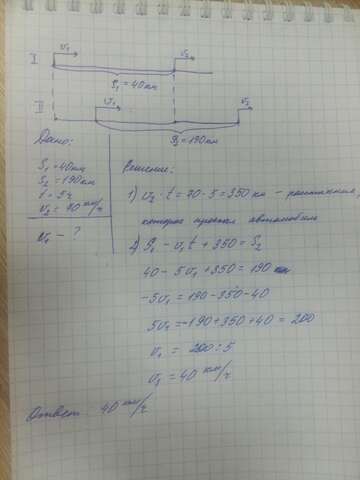 I
v₁
v₂
S₁ = 40 км
II
v₁
v₂
S₂ = 190 км
Дано:
S₁ = 40 км
S₂ = 190 км
t = 5 ч
v₂ = 70 км/ч
v₁ - ?
Решение:
1) v₂ · t = 70 · 5 = 350 км - расстояние,
которое проехал автомобиль
2) S₁ - v₁t + 350 = S₂
40 - 5v₁ + 350 = 190
-5v₁ = 190 - 350 - 40
5v₁ = -190 + 350 + 40 = 200
v₁ = 200 : 5
v₁ = 40 км/ч
Ответ 40 км/ч